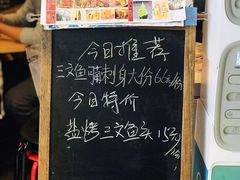 今日推荐
三文鱼腩刺身大份66元/份
今日特价
盐烤三文鱼头15元/份